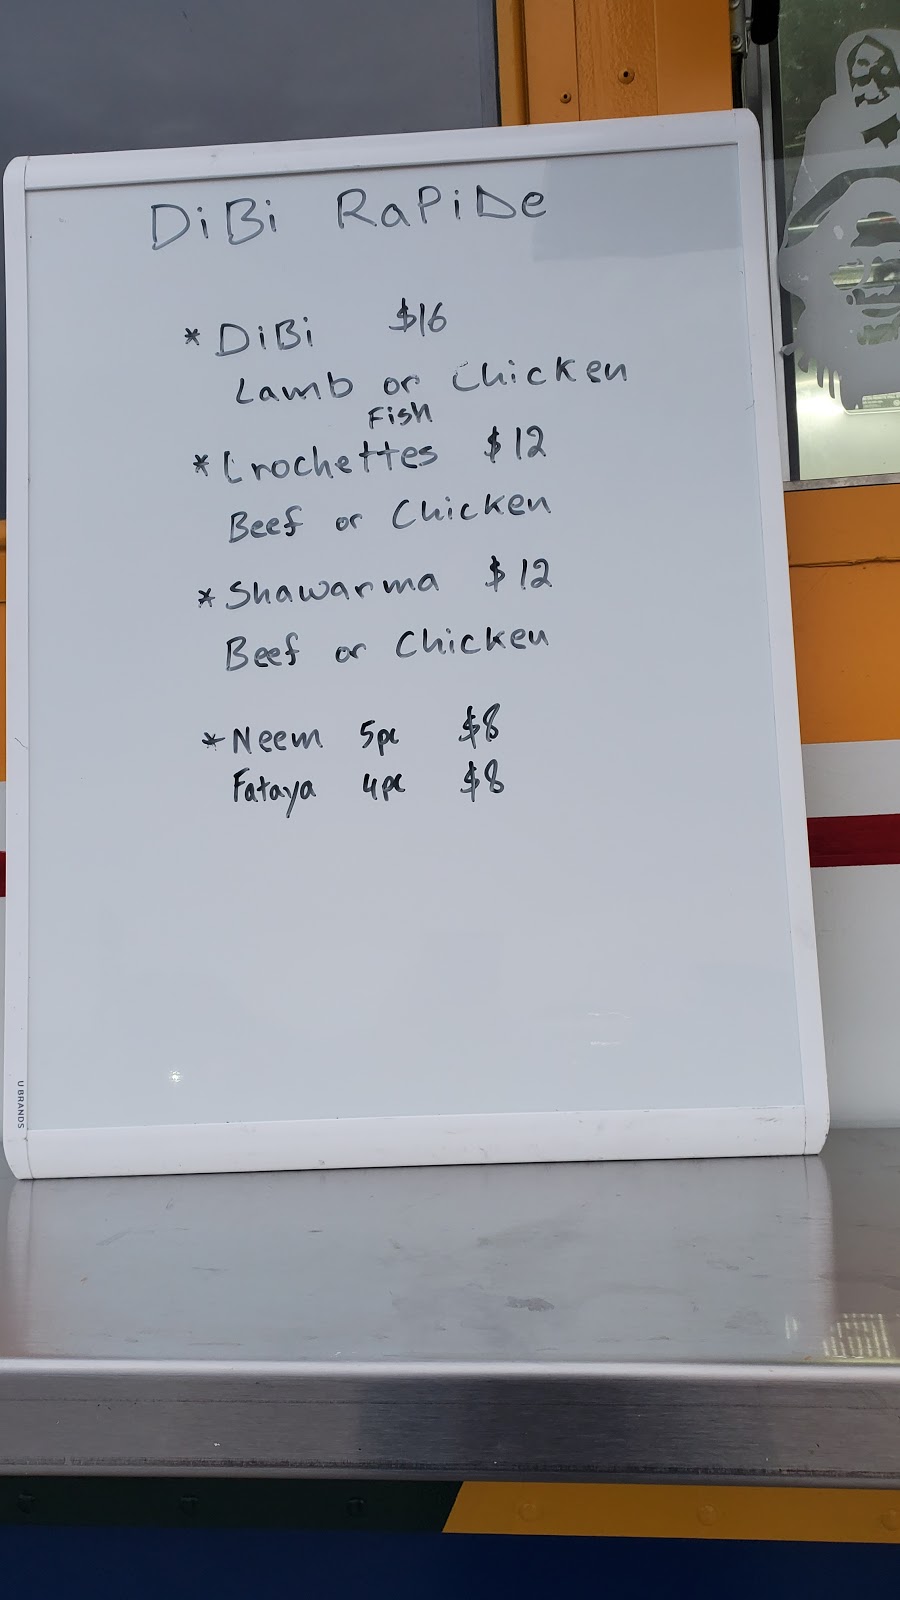 DiBi RaPiDe
* DiBi $16
Lamb or Chicken
Fish
* Crochettes $12
Beef or Chicken
* Shawarma $12
Beef or Chicken
* Neem 5pc $8
Fataya 4pc $8
U BRANDS